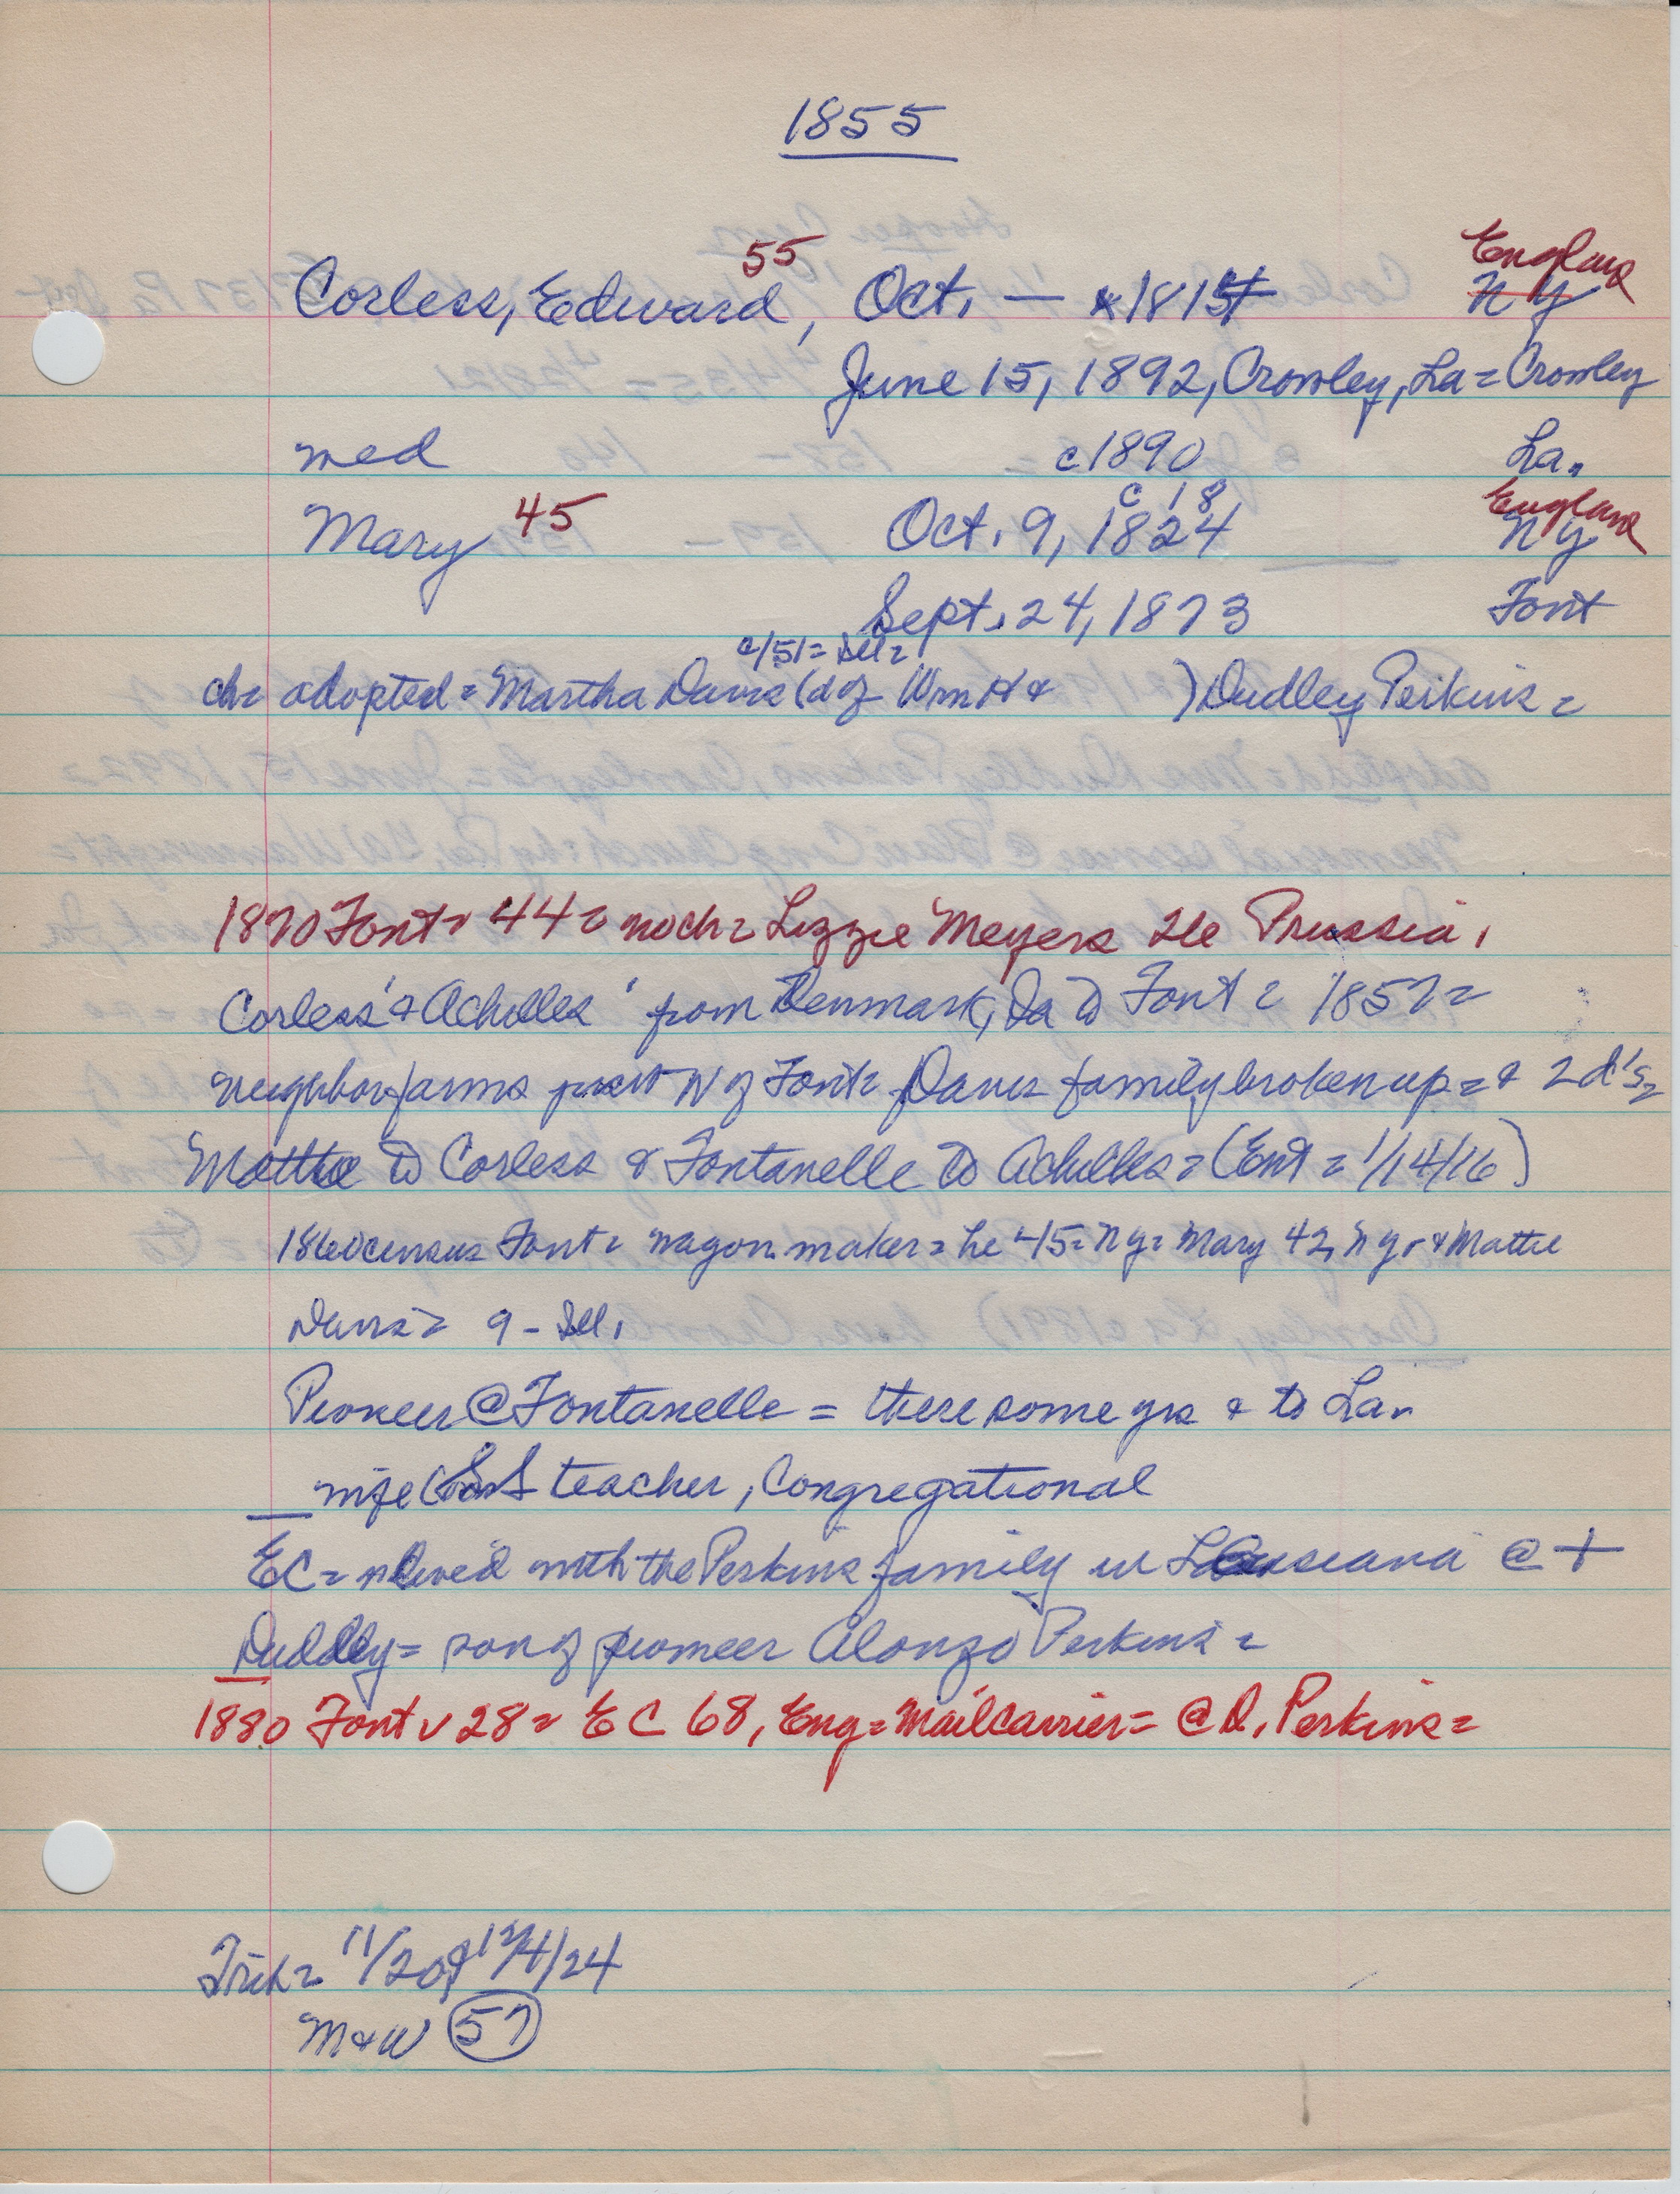 1855
55
England
Corless, Edward, Oct. — 1815 N Y
June 15, 1892, Crowley, La = Crowley
med c1890 La.
c 18
England
Mary 45 Oct. 9, 1824 N Y
Sept. 24, 1873 Font
c/51 = Ill =
ch = adopted = Martha Davis (d of Wm H & ) Dudley Perkins =
1870 Font v 44 = no ch = Lizzie Meyers 26 Prussia,
Corless' & Achilles' from Denmark, Ia to Font = 1857 =
neighbor farms just W of Font = Davis family broken up = & 2 d's =
Mattie to Corless & Fontanelle to Achilles = (Ent = 1/14/16)
1860 census Font = wagon maker = he 45 = N Y = Mary 42, N Y, & Mattie
Davis = 9 - Ill,
Pioneer @ Fontanelle = there some yrs & to La.
wife S S teacher, Congregational
EC = lived with the Perkins family in Louisiana @ +
Dudley = son of pioneer Alonzo Perkins =
1880 Font v 28 = E C 68, Eng = Mail carrier = @ D. Perkins =
Trib = 11/20 & 12/4/24
M & W 57